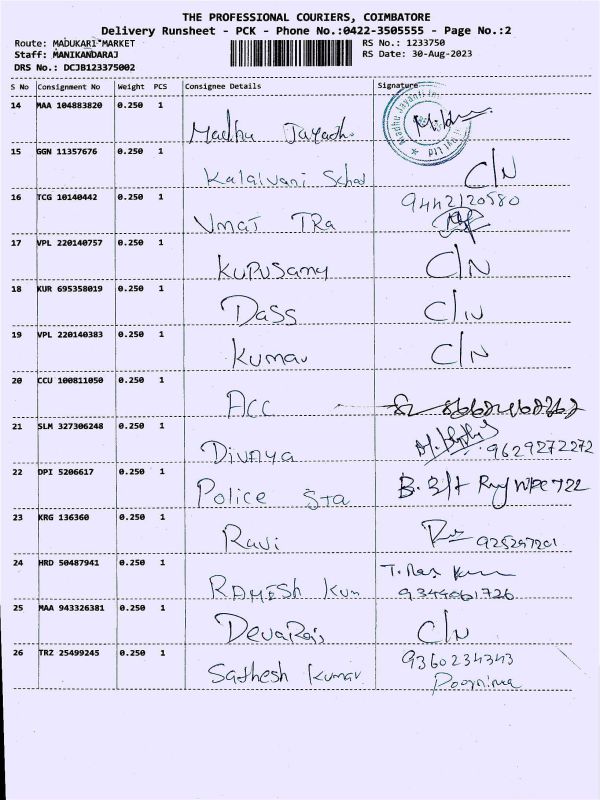 THE PROFESSIONAL COURIERS, COIMBATORE
Delivery Runsheet - PCK - Phone No.:0422-3505555 - Page No.:2
Route: MADUKARI MARKET RS No.: 1233750
Staff: MANIKANDARAJ RS Date: 30-Aug-2023
DRS No.: DCJB123375002
S No Consignment No Weight PCS Consignee Details Signature
14 MAA 104883820 0.250 1
Madhu
15 GGN 11357676 0.250 1
Kalaivani C/N
16 TCG 10140442 0.250 1 9442120580
Umaj TRa
17 VPL 220140757 0.250 1
Kupusamy C/N
18 KUR 695358019 0.250 1
Dass C/N
19 VPL 220140383 0.250 1
Kumar C/N
20 CCU 100811050 0.250 1
ACC
21 SLM 327306248 0.250 1
Divaya 9629272272
22 DPI 5206617 0.250 1
Police Sta
23 KRG 136360 0.250 1
Ravi
24 HRD 50487941 0.250 1
RAMESh Kum 9344061726
25 MAA 943326381 0.250 1
DevaRaj C/N
26 TRZ 25499245 0.250 1 9360234343
Sathesh Kumar Poornima